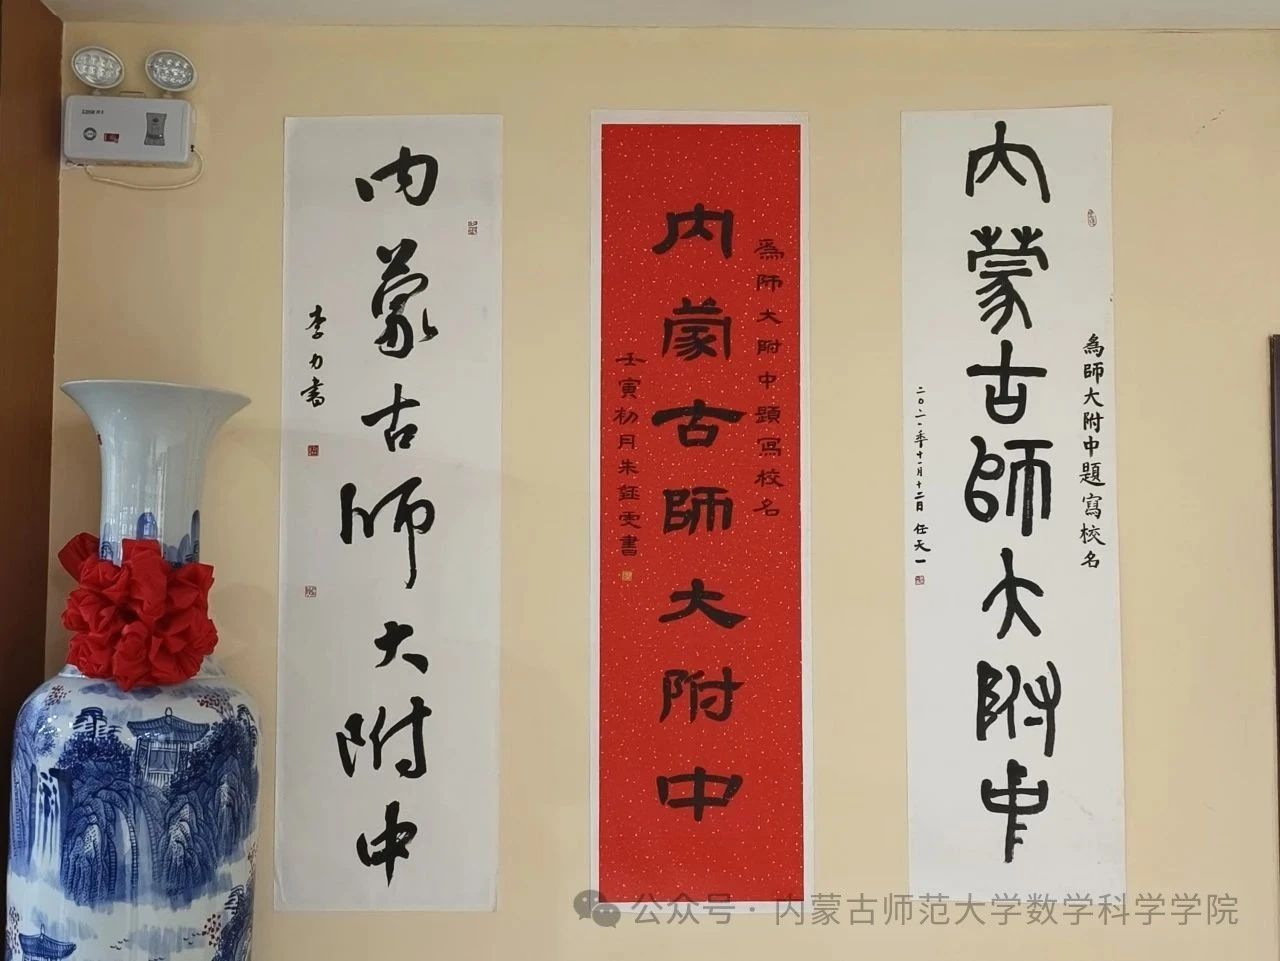 内蒙古师大附中
李力書
為師大附中題寫校名
内蒙古師大附中
壬寅初月朱鉦雯書
為師大附中題寫校名
内蒙古師大附中
二〇二一年十一月十二日 任天一
公众号 · 内蒙古师范大学数学科学学院